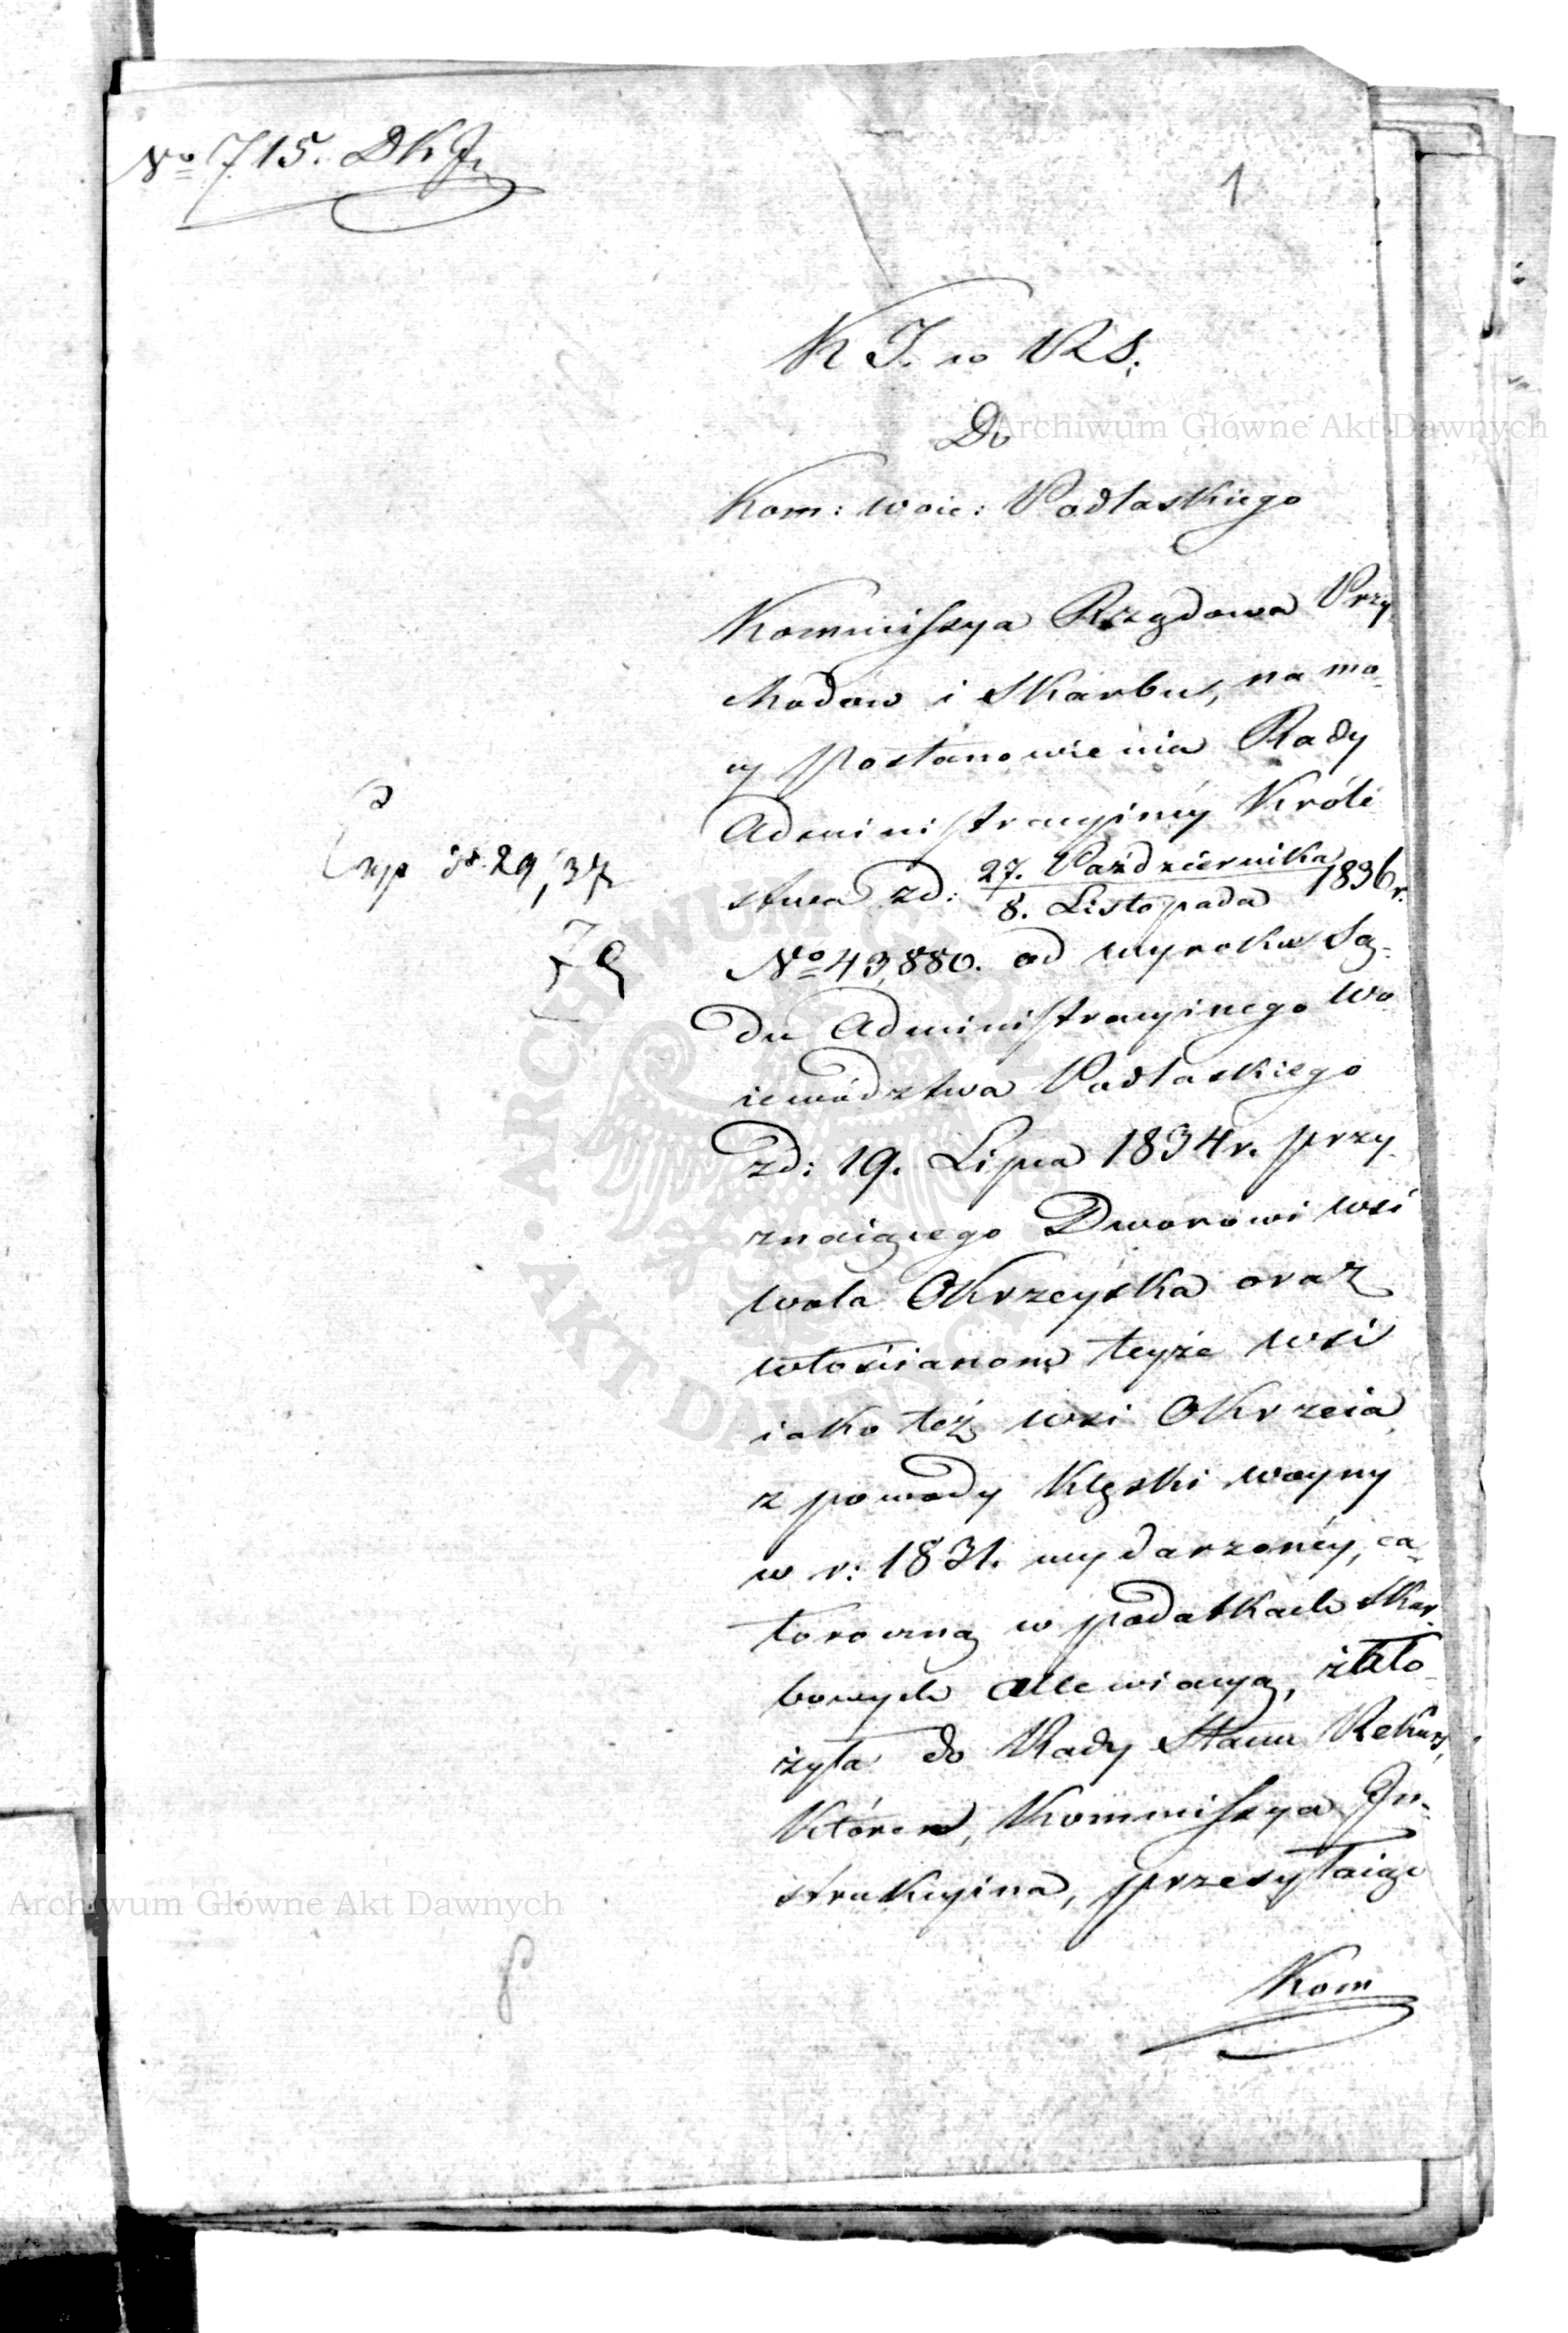 No 715. D K J.
1
K J. w R S.
Do
Kom: woie: Podlaskiego
Kommissya Rządowa Przy
chodów i Skarbu, na mo-
cy Postanowienia Rady
Administracyinéy Króle
stwa zd: 27. Października / 8. Listopada 1836 r.
Exp 29, 37
No 43,880. od wyroku Są-
du Administracyinego Wo
iewództwa Podlaskiego
zd: 19. Lipca 1834 r. przy-
znaiącego Dworowi wsi
Wola Okrzeyska oraz
włościanom teyże wsi
iako też wsi Okrzeia,
z powodu klęski woyny
w r: 1831. wydarzonéy, ca-
łoroczną w podatkach Skar-
bowych allewiacyą, założ-
żyła do Rady Stanu Rekurs,
który, Kommissya In-
strukcyina, przesyłaiąc
Kom
Archiwum Główne Akt Dawnych
Archiwum Główne Akt Dawnych
ARCHIWUM GŁÓWNE AKT DAWNYCH